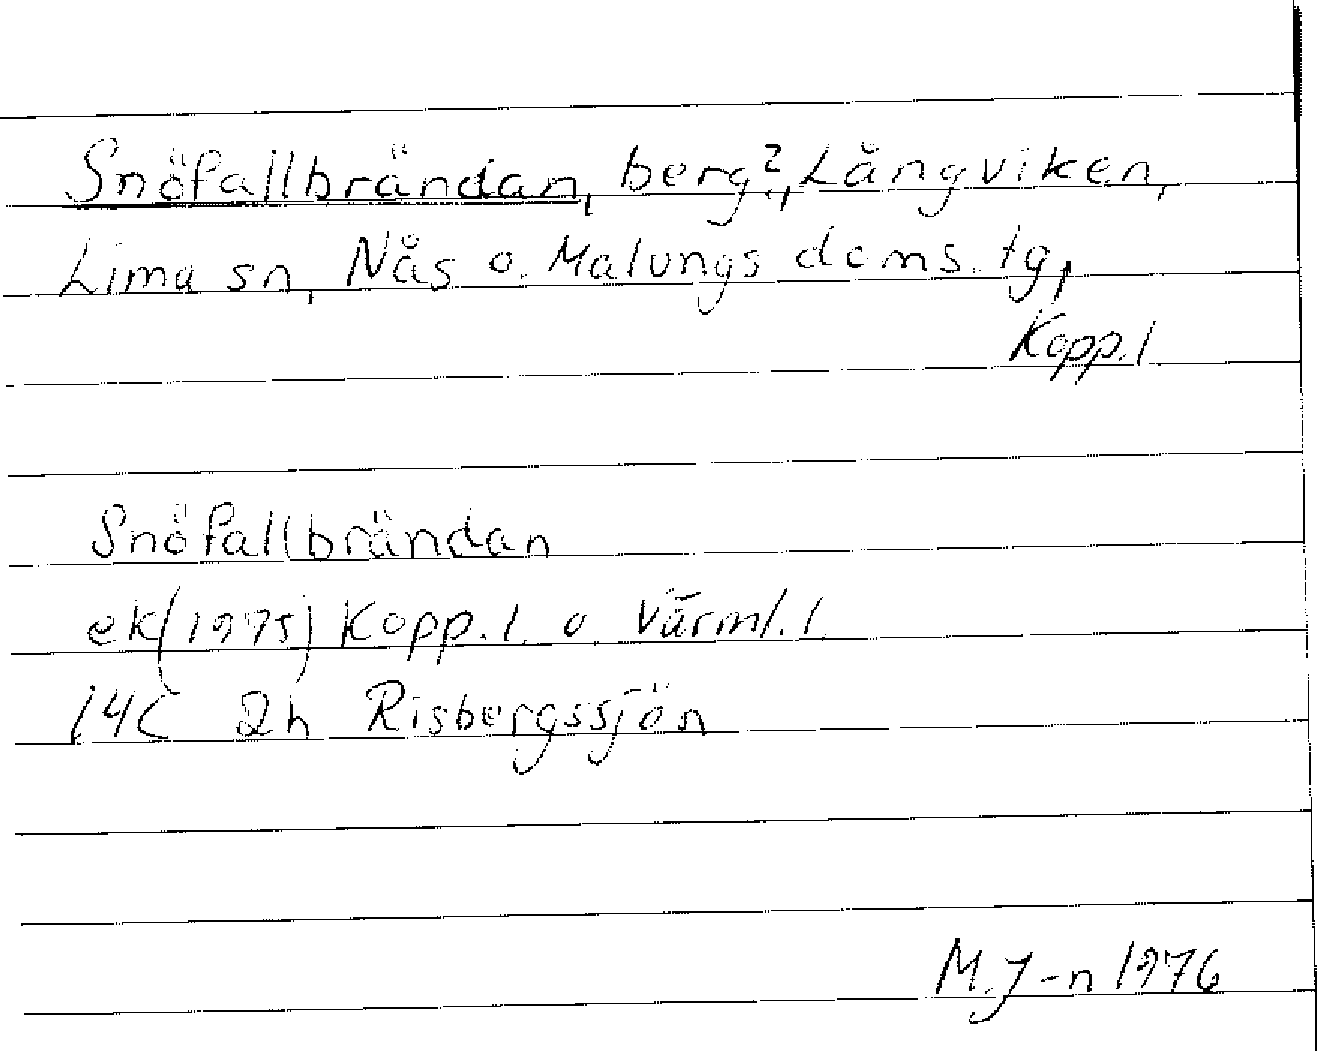 Snöfallbrändan, berg?, Långviken,
Lima sn, Nås o. Malungs doms. tg,
Kopp. l.
Snöfallbrändan
ek (1975) Kopp. l. o Värml. l.
14C 2h Risbergssjön
M. J-n 1976